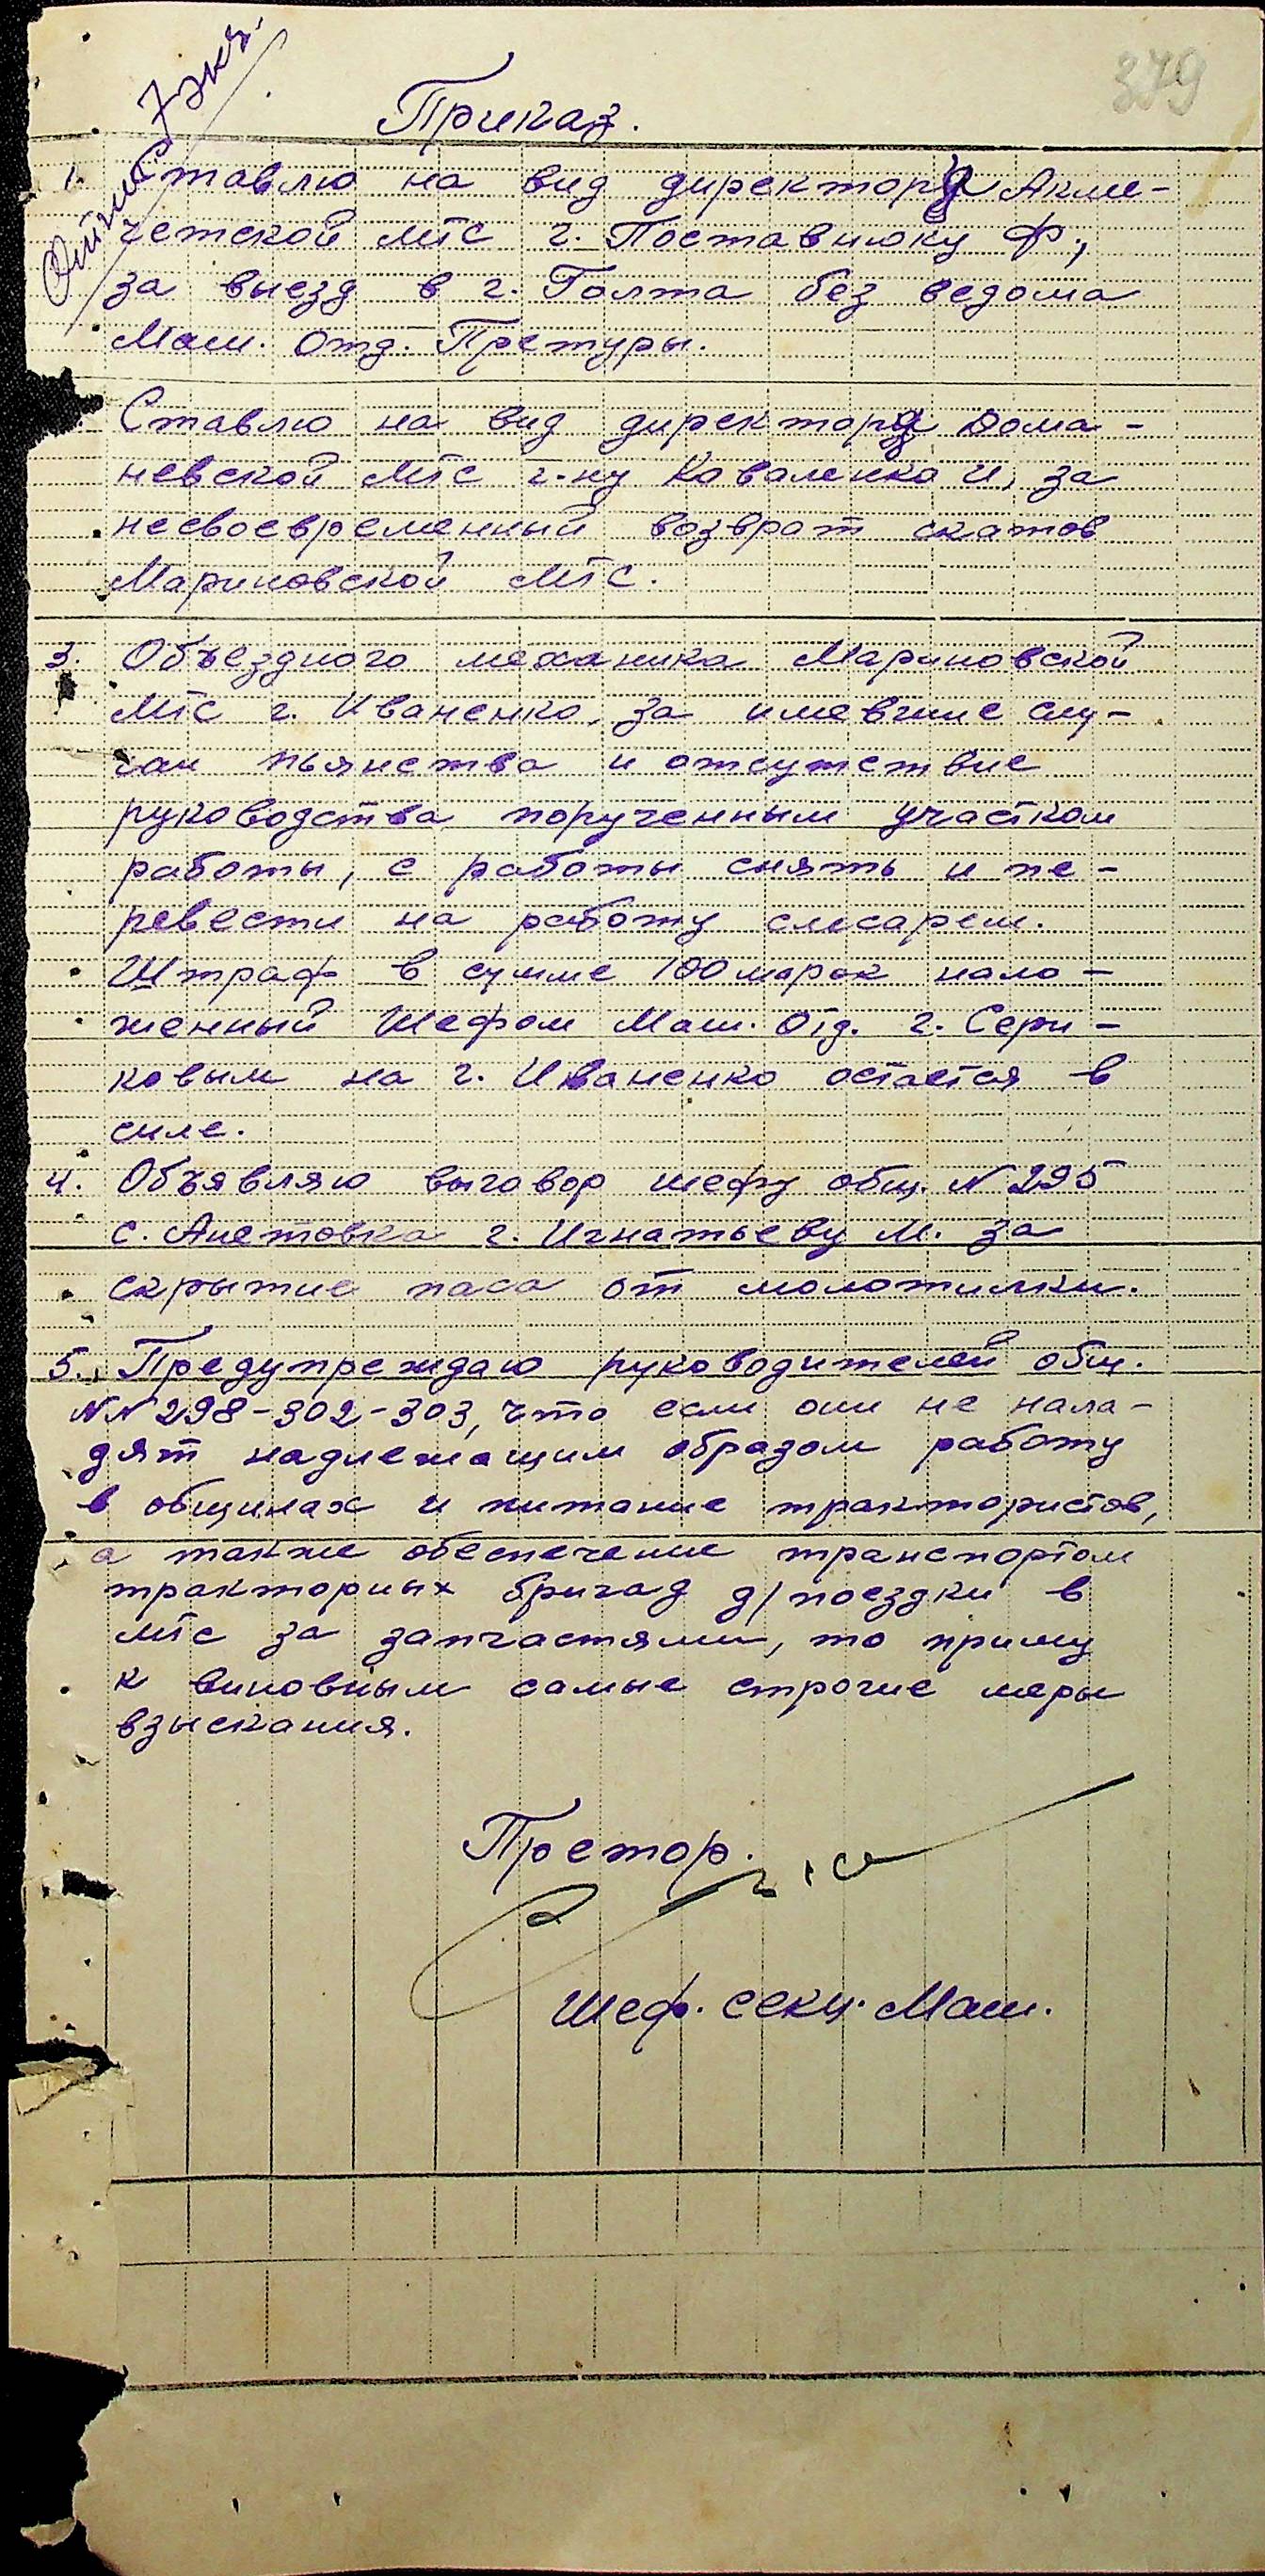 379
Отбить 7 экз.
Приказ.
1. Ставлю на вид директору Акме-
четской мтс г. Поставнюку Ф.,
за выезд в г. Голта без ведома
Маш. Отд. Претуры.
Ставлю на вид директору Дома-
невской Мтс г-ну Коваленко И, за
несвоевременный возврат скатов
Мариновской мтс.
3. Объездного механика Мариновской
Мтс г. Иваненко, за имевшие слу-
чаи пьянства и отсутствие
руководства порученным участком
работы, с работы снять и пе-
ревести на работу слесарем.
Штраф в сумме 100 марок нало-
женный Шефом Маш. Отд. г. Сери-
ковым на г. Иваненко остается в
силе.
4. Объявляю выговор шефу общ. N 295
с. Анетовка г. Игнатьеву М. за
скрытие паса от молотилки.
5. Предупреждаю руководителей общ.
NN 298-302-303, что если они не нала-
дят надлежащим образом работу
в общинах и питание трактористов,
а также обеспечение транспортом
тракторных бригад д/поездки в
мтс за запчастями, то приму
к виновным самые строгие меры
взыскания.
Претор.
Шеф. секц. Маш.